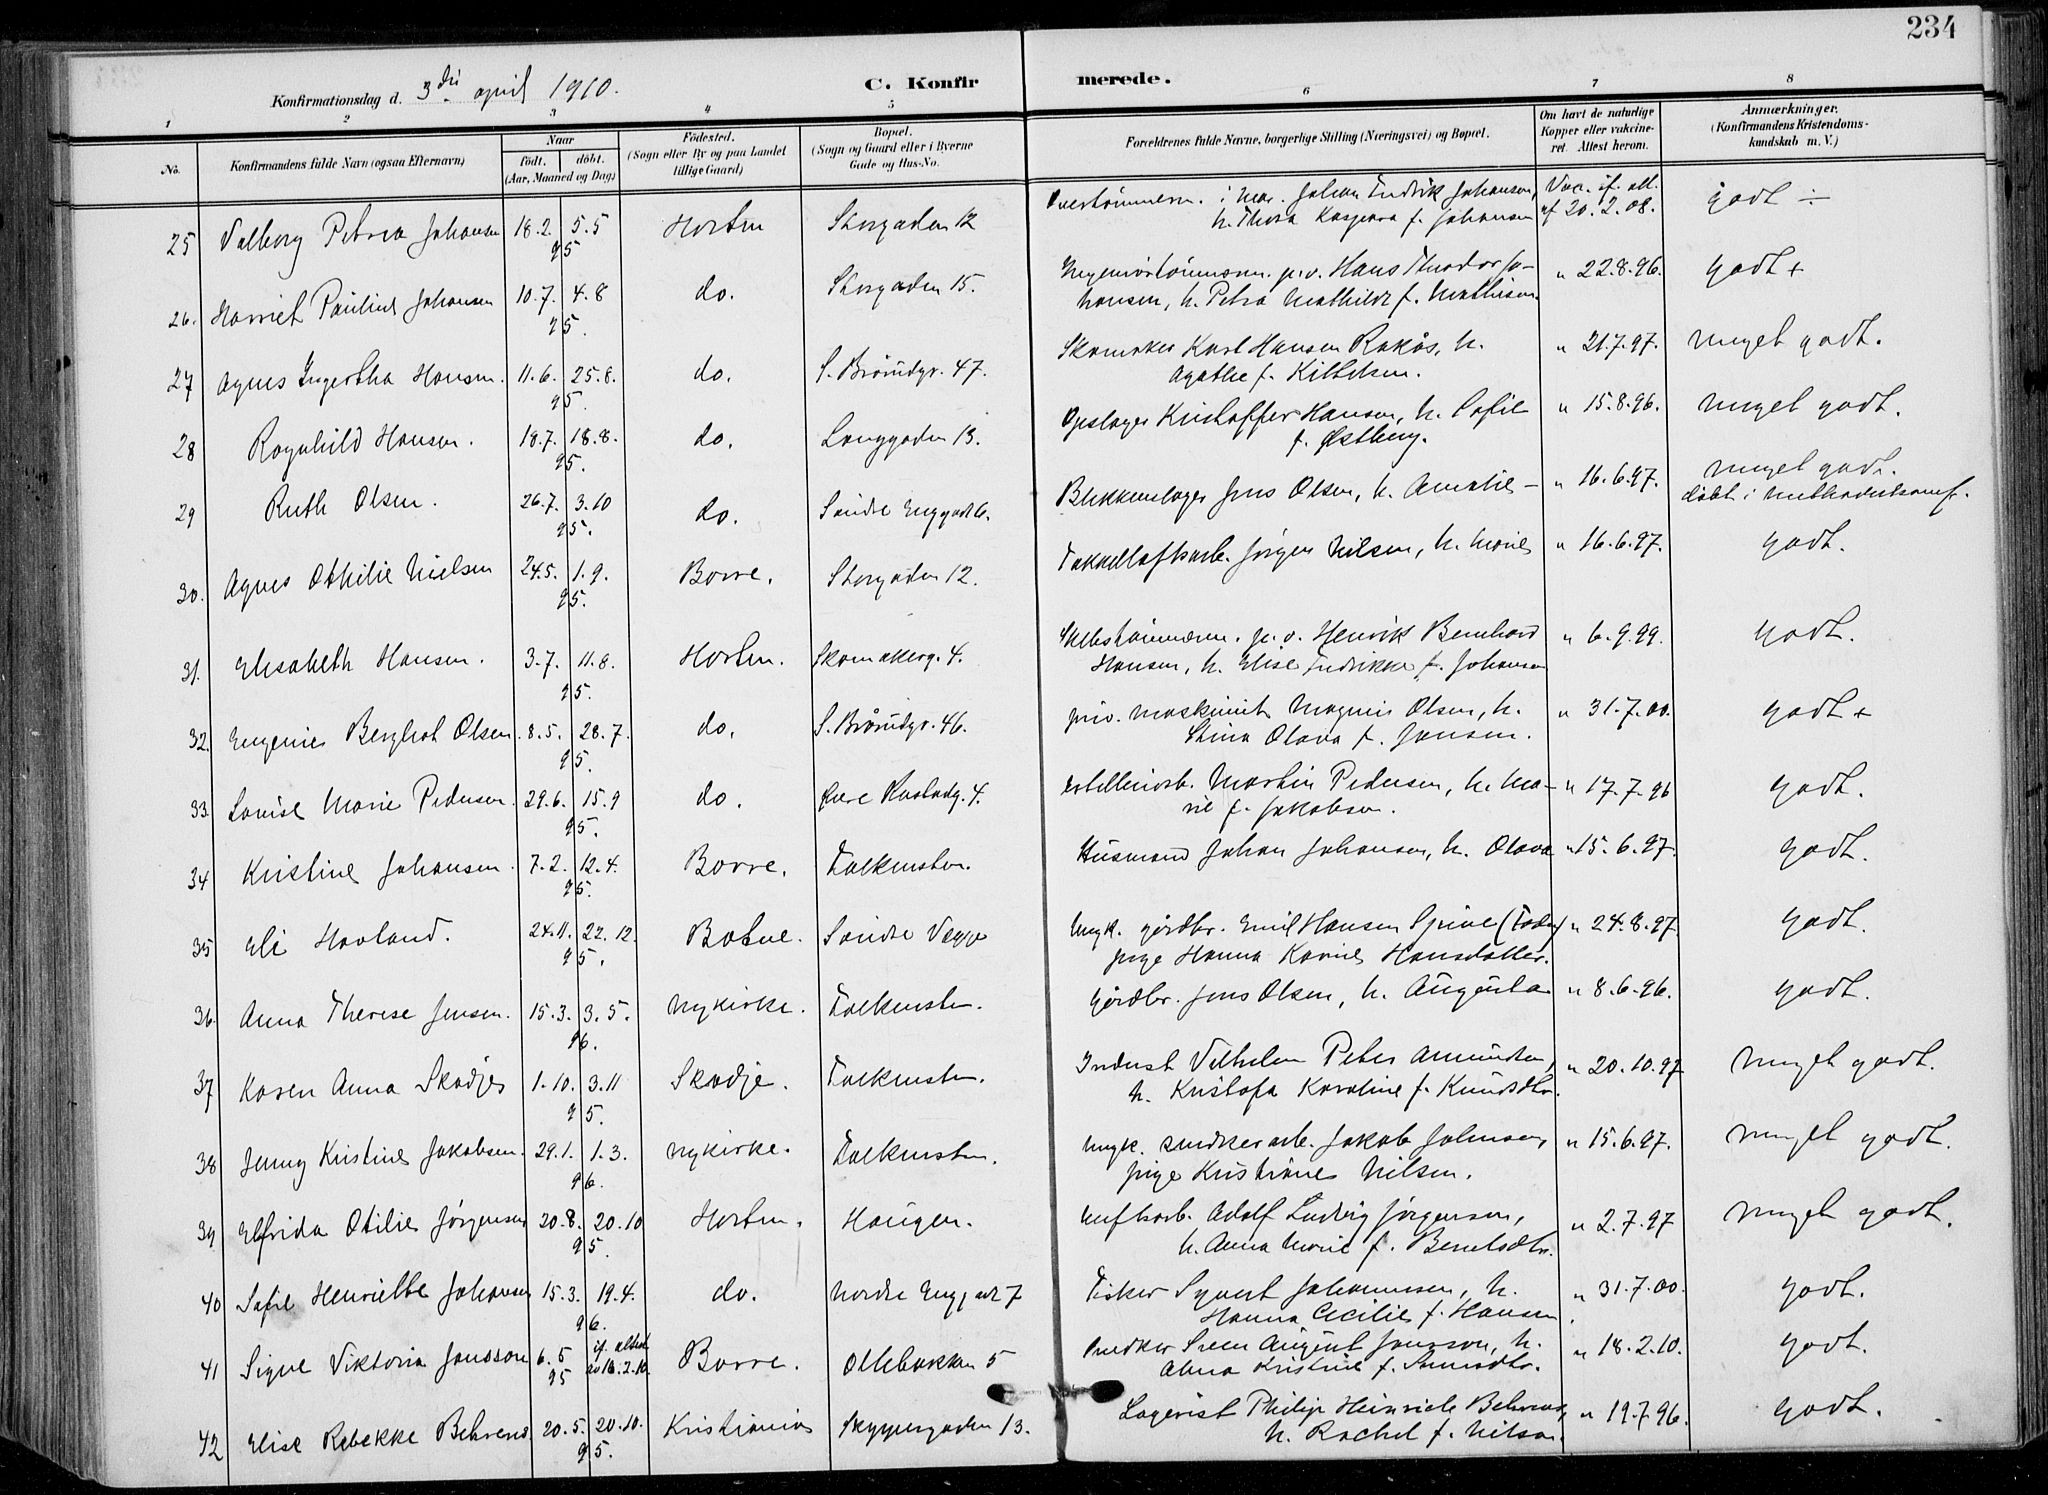 234
Konfirmationsdag d. 3die april 1910.
C. Konfirmerede.
1 2 3 4 5 6 7 8
No.
Konfirmandens fulde Navn (ogsaa Efternavn)
Naar
født. døbt.
(Aar, Maaned og Dag)
Fødested.
(Sogn eller By og paa Landet
tillige Gaard)
Bopæl.
(Sogn og Gaard eller i Byerne
Gade og Hus-No.
Forældrenes fulde Navne, borgerlige Stilling (Næringsvei) og Bopæl.
Om havt de naturlige
Kopper eller vakcine-
ret. Attest herom.
Anmærkninger.
(Konfirmandens Kristendoms-
kundskab m. V.)
25 Valborg Petrea Johansen 18.2. 5.5 95 Horten Storgaden 12 i mar. Johan Fredrik Johansen,
h. Thora Kaspara f. Johansen Vac. if. att. af 20.2.08. godt ÷
26. Harriet Pauline Johansen 10.7. 4.8 95. do. Storgaden 15. p.v. Hans Theodor Jo-
hansen, h. Petra Mathilde f. Mathisen. " 22.8.96. godt +
27 Agnes Ingertha Hansen. 11.6. 25.8. 95. do. S. Brårudgr. 47. Skomaker Karl Hansen Rakås, h.
Agathe f. Kittilsen. " 21.7.97. meget godt.
28 Ragnhild Hansen. 18.7. 18.8. 95. do. Langgaden 13. Opslager Kristoffer Hansen, h. Sofie
f. Østberg. " 15.8.96. meget godt.
29 Ruth Olsen. 26.7. 3.10 95. do. Søndre Enggade 6. Blikkenslager Jens Olsen, h. Amalie – " 16.6.97. meget godt.
døbt i Methodistsamf.
30. Agnes Othilie Nielsen 24.5. 1.9. 95. Borre. Storgaden 12. Takkelloftsarb. Jørgen Nilsen, h. Marie " 16.6.97. godt.
31. Elisabeth Hansen. 3.7. 11.8. 95. Horten. Skomakerg. 4. p.v. Henrik Bernhard
Hansen, h. Elise Fredrikke f. Johansen " 6.9.99. godt.
32. Eugenie Berghot Olsen. 8.5. 28.7. 95. do. S. Brårudgr. 46. priv. maskinist Magnus Olsen, h.
Stina Olava f. Jansen. " 31.7.00. godt +
33. Louise Marie Pedersen. 29.6. 15.9 95. do. Øvre 4. Martin Pedersen, h. Ma-
rie f. Jakobsen. " 17.7.96 godt.
34 Kristine Johansen. 7.2. 12.4. 95. Borre. Falkensten. Husmand Johan Johansen, h. Olava " 15.6.97. godt.
35 Eli Havland. 24.11. 22.12. 95. Botne. Søndre Ungk. gårdbr. Emil Hansen
pige Hanna Karine Hansdatter. " 24.8.97. godt.
36. Anna Therese Jensen. 15.3. 3.5. 96. Nykirke. Falkensten. Gårdbr. Jens Olsen, h. Augusta " 8.6.96. godt.
37 Karen Anna Skodje 1.10. 3.11 95. Skodje. Falkensten. Inderst Vilhelm Peter Amundsen,
h. Kristofa Karoline f. Knudsdtr. " 20.10.97 meget godt.
38 Jenny Kristine Jakobsen. 29.1. 1.3. 96. Nykirke. Falkensten. Ungk. snedkerarb. Jakob Johnsen,
pige Kristiane Nilsen. " 15.6.97. meget godt.
39 Elfrida Otilie Jørgensen 20.8. 20.10 95. Horten. Haugen. Adolf Ludvig Jørgensen,
h. Anna Marie f. Berntsdtr. " 2.7.97 meget godt.
40 Sofie Henriette Johansen 15.3. 19.4. 96. do. Nordre Enggade 7 Fisker Syvert Johannesen, h.
Hanna Cecilie f. Hansen. " 31.7.00. godt.
41 Signe Viktoria Jansson 6.5 95 if. attest 16.2.10. Borre. Ollebakken 5 Snedker Sven August Jonsson, h.
Anna Kristine f. " 18.2.10. godt.
42 Elise Rebekke Behrens 20.5. 20.10. 95. Kristiania Skyppergaden 13. Lagerist Philip Heinrich Behrens,
h. Rachel f. Nilsen. " 19.7.96. godt.